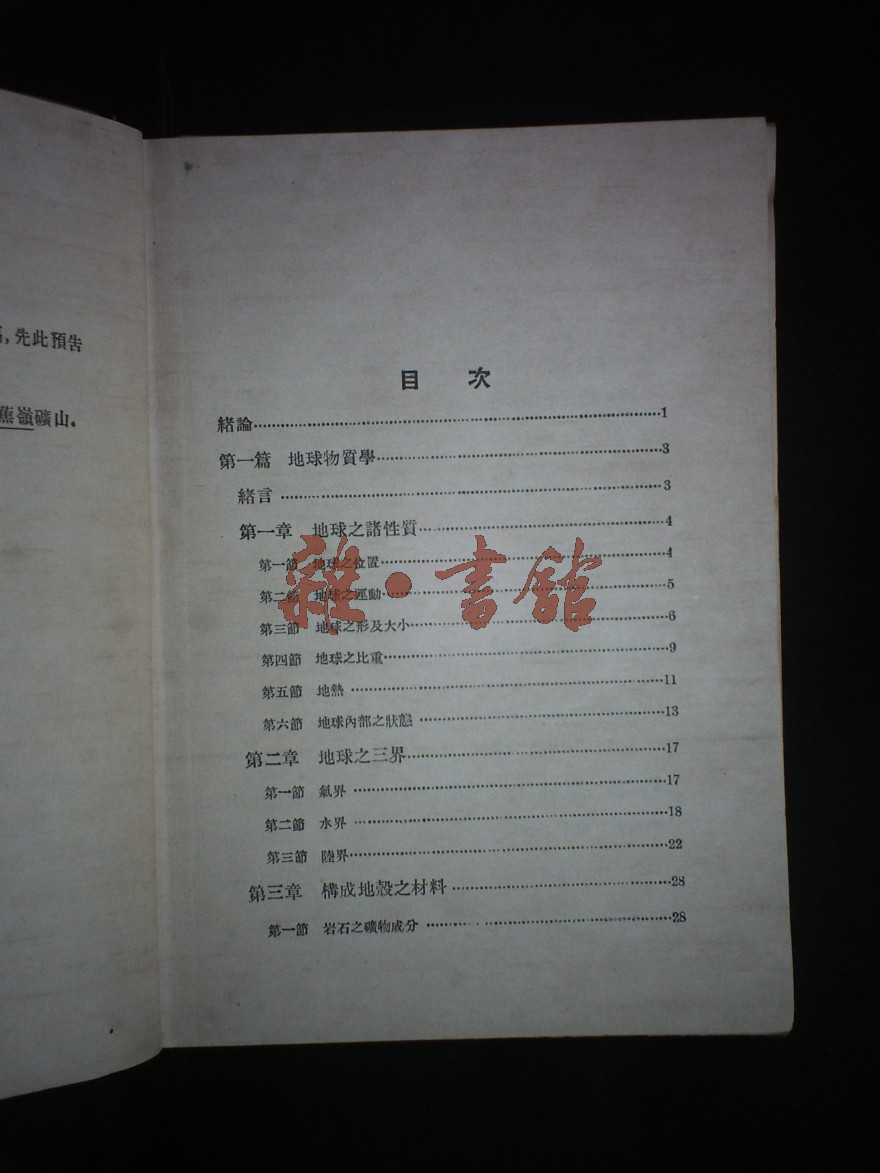 先此預告
蕉嶺礦山。
目 次
緒論……1
第一篇 地球物質學……3
緒言……3
第一章 地球之諸性質……4
第一節 地球之位置……4
第二節 地球之運動……5
第三節 地球之形及大小……6
第四節 地球之比重……9
第五節 地熱……11
第六節 地球內部之狀態……13
第二章 地球之三界……17
第一節 氣界……17
第二節 水界……18
第三節 陸界……22
第三章 構成地殼之材料……28
第一節 岩石之礦物成分……28
雜·書館